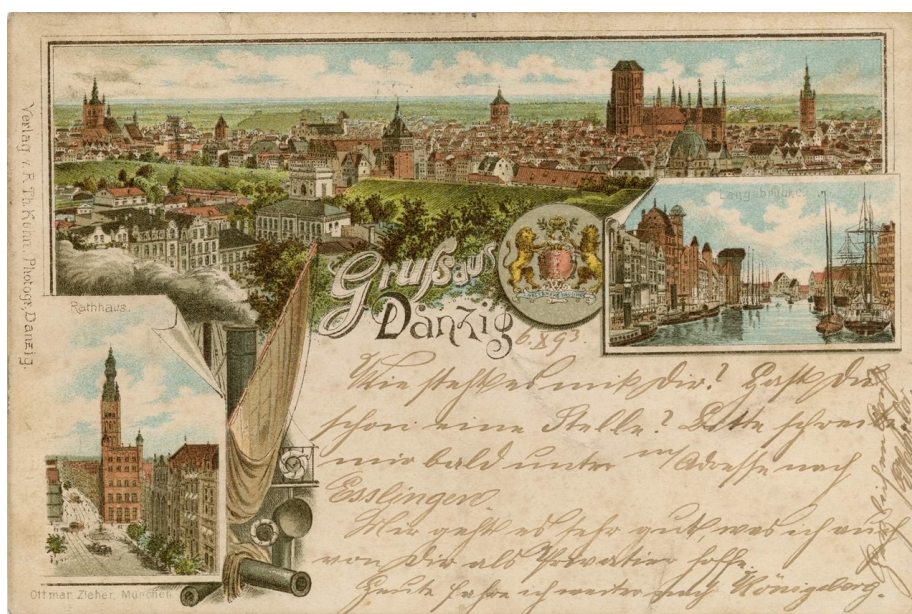 Verlag v. R. Th. Kuhn, Photogr., Danzig.
Langebrücke
Gruß aus
Danzig
Rathhaus.
6. X 93.
Wie steht es mit Dir? Hast Du
schon eine Stelle? Bitte schreibe
mir bald unter m/ Adresse nach
Esslingen.
Mir geht es sehr gut, was ich auch
von Dir als Privatier hoffe.
Heute fahre ich weiter nach Königsberg.
Ottmar Zieher, München.